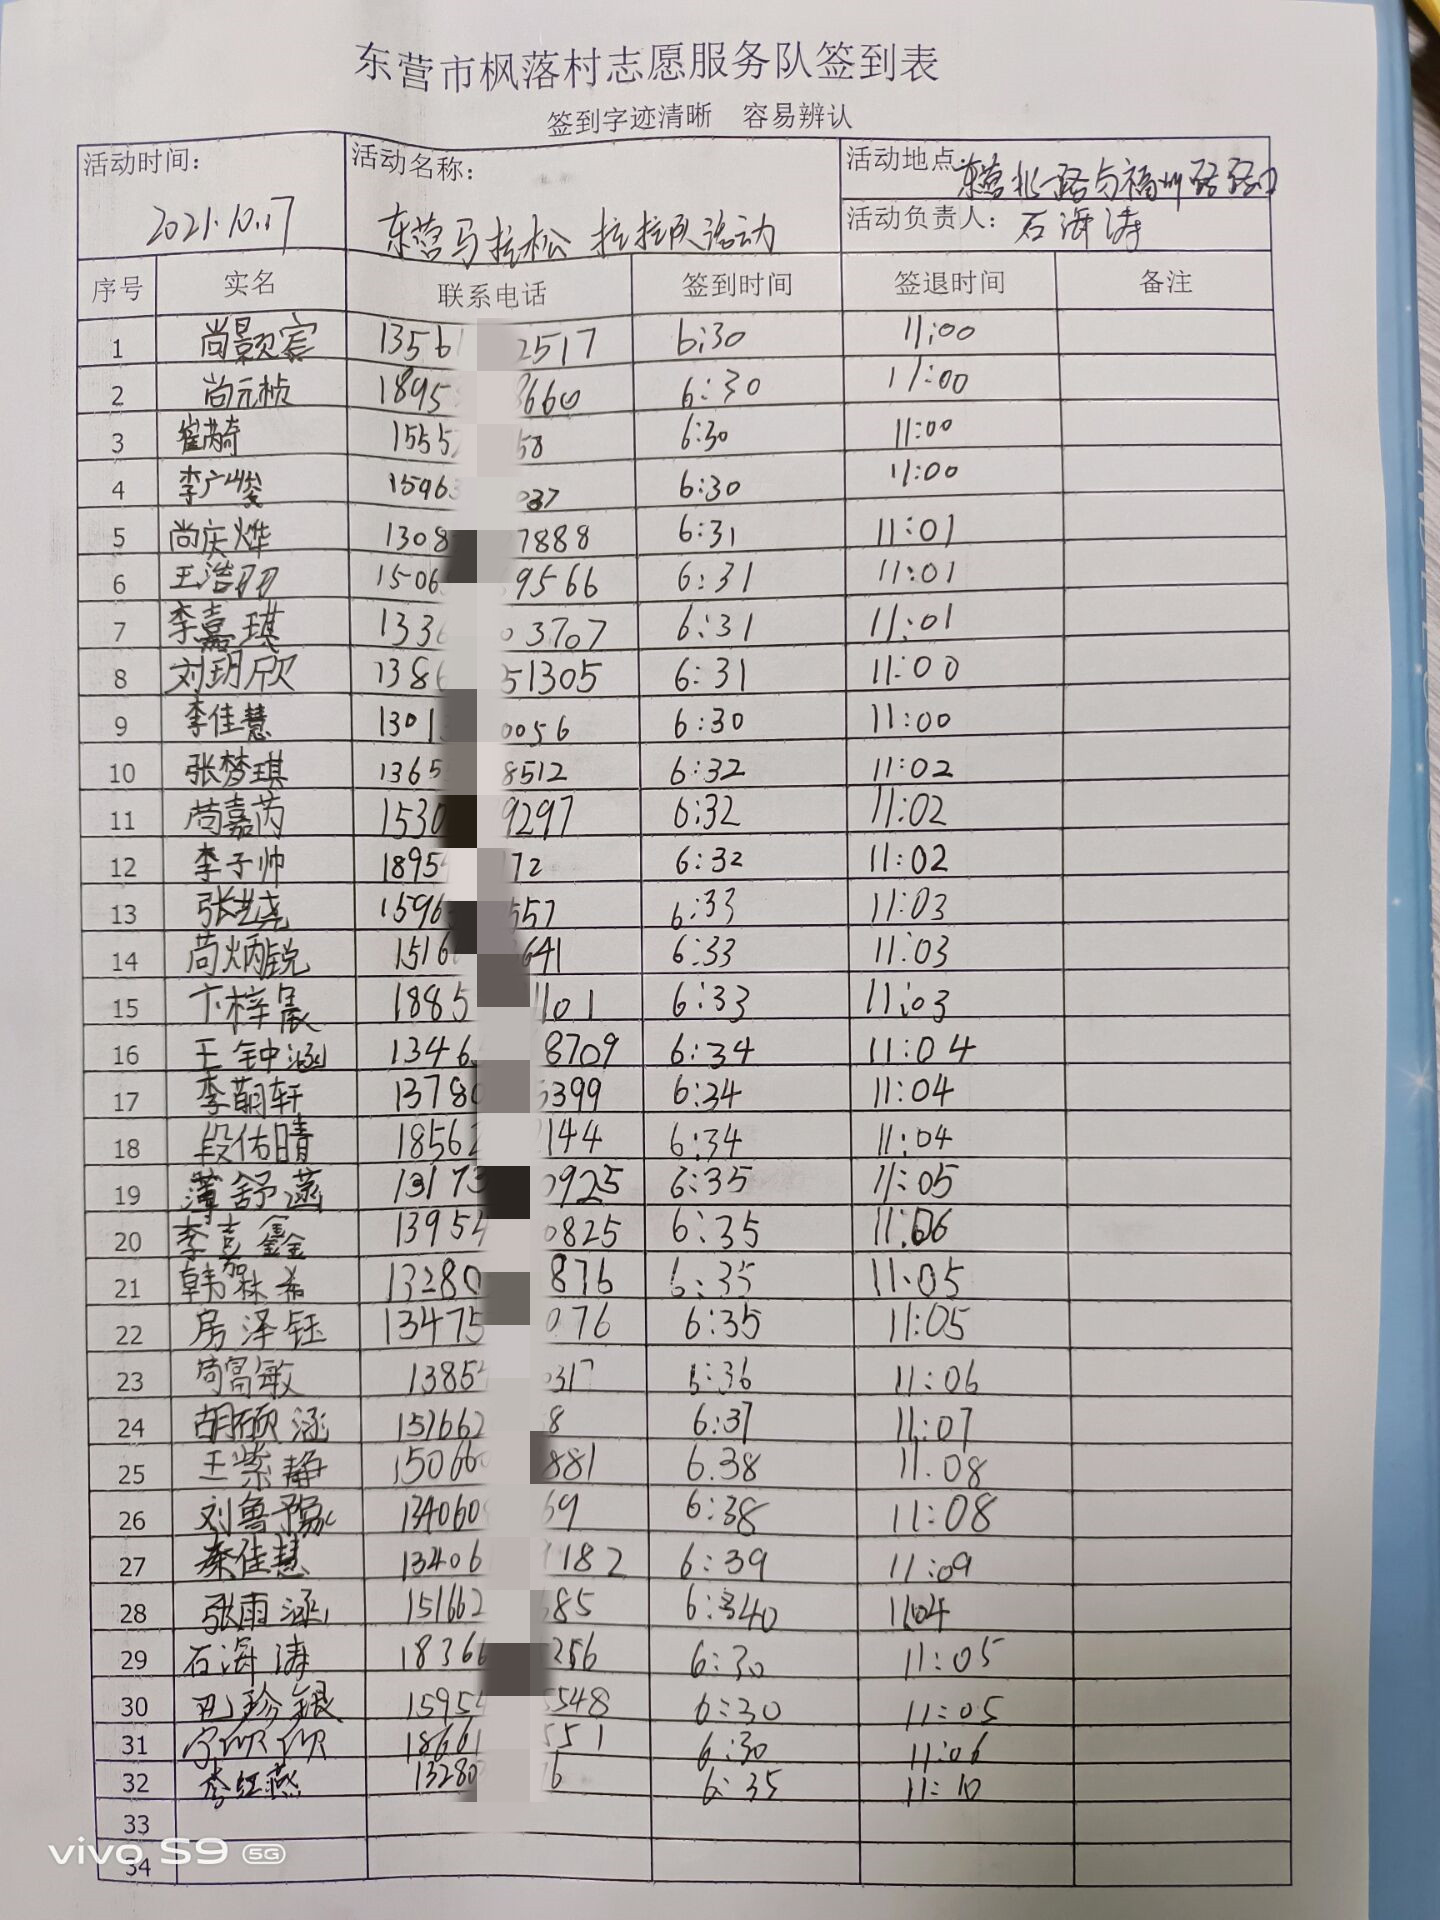 东营市枫落村志愿服务队签到表
签到字迹清晰 容易辨认
活动时间： 2021.10.17 活动名称： 东营马拉松 拉拉队活动 活动地点： 东营北一路与福州路路口
活动负责人： 石海涛
序号 实名 联系电话 签到时间 签退时间 备注
1 尚景宸 13561 2517 6:30 11:00
2 尚元桢 1895 3660 6:30 11:00
3 崔芮奇 1555 58 6:30 11:00
4 李广峻 15963 037 6:30 11:00
5 尚庆烨 1308 7888 6:31 11:01
6 王浩羽 1506 9566 6:31 11:01
7 李嘉琪 133 03707 6:31 11:01
8 刘玥欣 1386 51305 6:31 11:00
9 李佳慧 1301 0056 6:30 11:00
10 张梦琪 1365 8512 6:32 11:02
11 苘嘉芮 1530 9297 6:32 11:02
12 李子帅 1895 72 6:32 11:02
13 张艺尧 1596 557 6:33 11:03
14 苘炳锐 1516 641 6:33 11:03
15 卞梓晨 1885 1101 6:33 11:03
16 王钟涵 1346 8709 6:34 11:04
17 李萌轩 13780 5399 6:34 11:04
18 段佑晴 18562 144 6:34 11:04
19 薄舒涵 13173 0925 6:35 11:05
20 李嘉鑫 13954 0825 6:35 11:06
21 韩林希 13280 876 6:35 11:05
22 房泽钰 13475 076 6:35 11:05
23 苘富敏 1385 0317 6:36 11:06
24 胡硕涵 151662 8 6:37 11:07
25 王紫静 15066 881 6.38 11.08
26 刘鲁豫 134060 69 6:38 11:08
27 秦佳慧 13406 182 6:39 11:09
28 张雨涵 151662 585 6:40 11:04
29 石海涛 18366 256 6:30 11:05
30 巴珍银 15954 5548 6:30 11:05
31 18661 551 6:30 11:06
32 李红燕 13280 6 6:35 11:10
33
34
vivo S9 5G